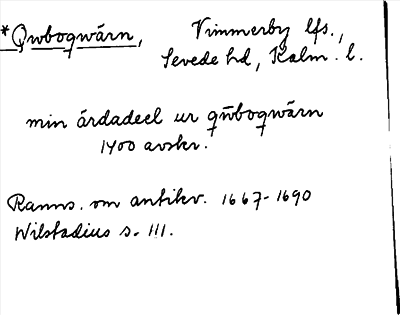 *Qwboqwärn, Vimmerby lfs.,
Sevede hd, Kalm. l.
min årdadeel ur qwboqwärn
1400 avskr.
Ranns. om antikv. 1667-1690
Wilstadius s. 111.